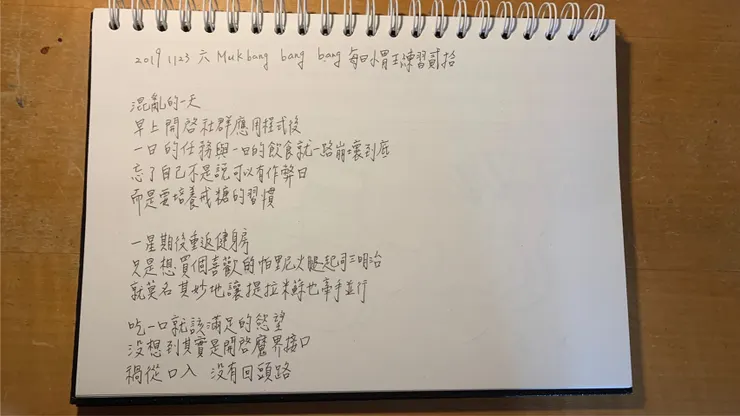 2019 1123 六 Mukbang bang bang 每日小胃王練習貳拾
混亂的一天
早上開啓社群應用程式後
一日的任務與一日的飲食就一路崩壞到底
忘了自己不是說可以有作弊日
而是要培養戒糖的習慣
一星期後重返健身房
只是想買個喜歡的帕里尼火腿起司三明治
就莫名其妙地讓提拉米蘇也牽手並行
吃一口就該滿足的慾望
沒想到其實是開啓魔界接口
禍從口入 沒有回頭路